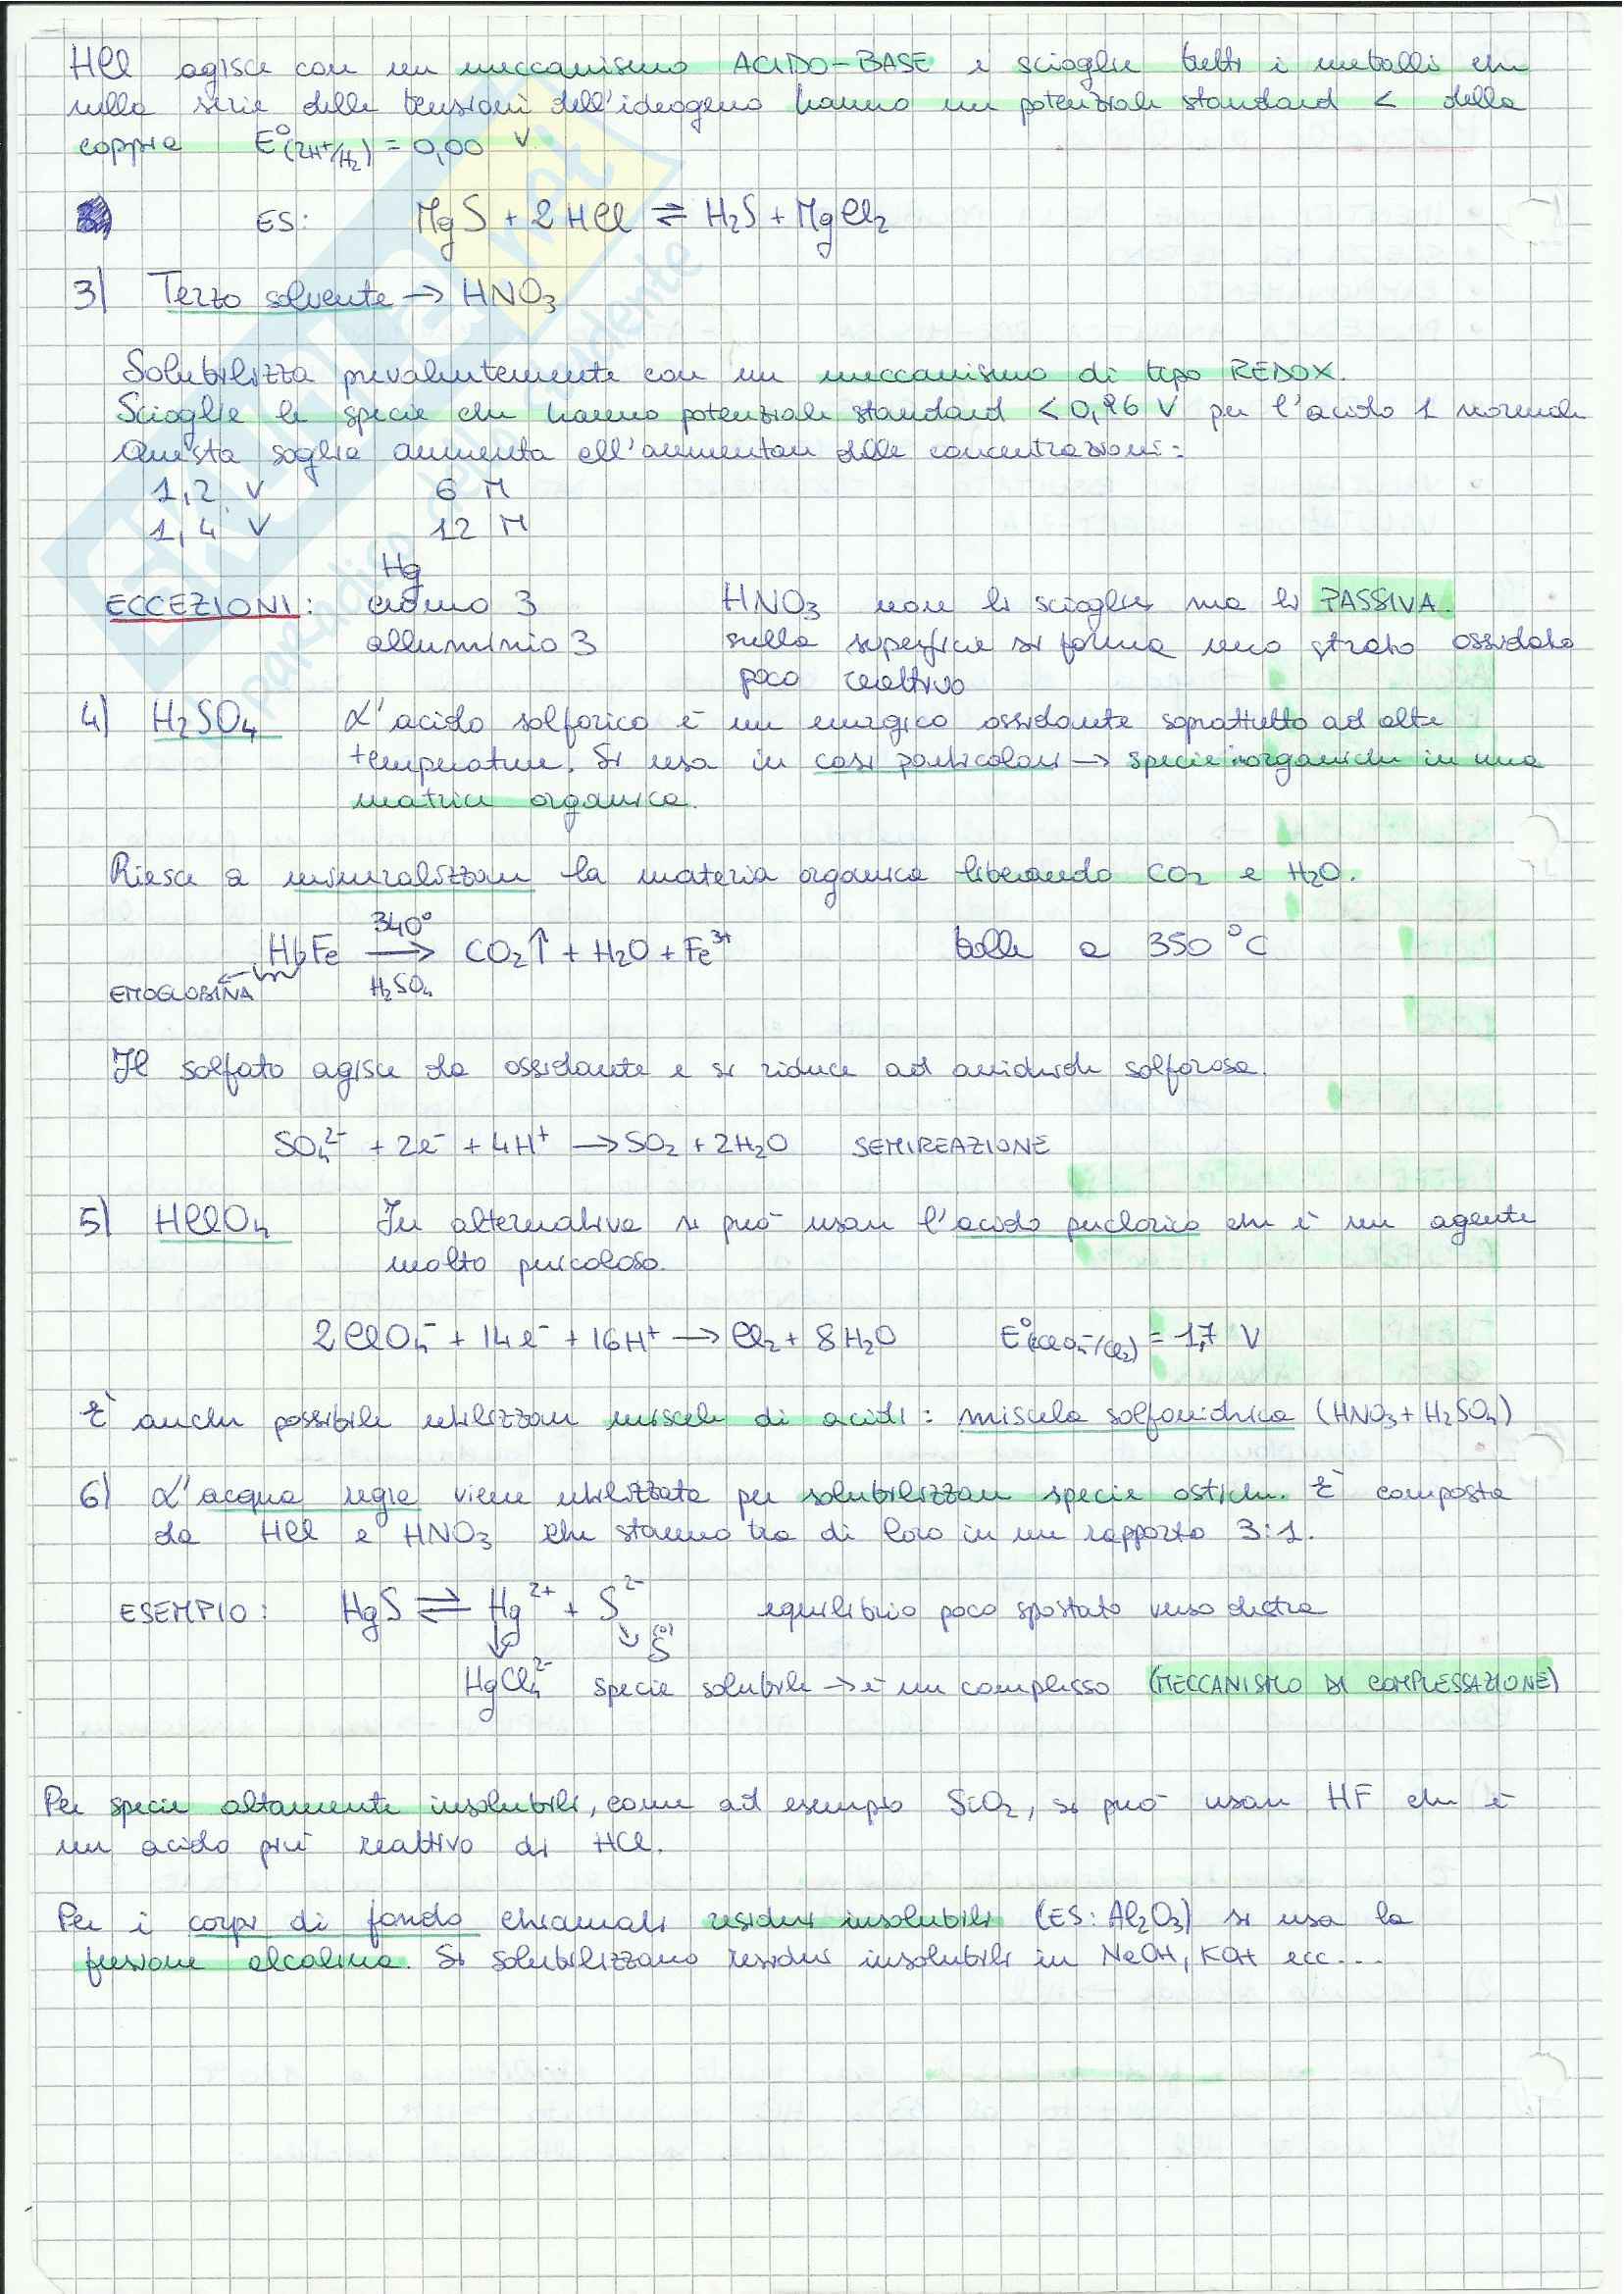 HCl agisce con un meccanismo ACIDO-BASE e scioglie tutti i metalli che
nella serie delle tensioni dell'idrogeno hanno un potenziale standard < della
coppia E°(2H+/H2) = 0,00 V
ES: MgS + 2HCl ⇌ H2S + MgCl2
3) Terzo solvente → HNO3
Solubilizza prevalentemente con un meccanismo di tipo REDOX.
Scioglie le specie che hanno potenziale standard < 0,96 V per l'acido 1 normale
Questa soglia aumenta all'aumentare delle concentrazioni:
1,2 V 6 M
1,4 V 12 M
Hg
ECCEZIONI: cromo 3 HNO3 non li scioglie ma li PASSIVA.
alluminio 3 sulla superficie si forma uno strato ossidato
poco reattivo
4) H2SO4 L'acido solforico è un energico ossidante soprattutto ad alte
temperature. Si usa in casi particolari → specie inorganiche in una
matrice organica.
Riesce a mineralizzare la materia organica liberando CO2 e H2O.
340°
HbFe → CO2↑ + H2O + Fe3+ bolle a 350 °C
EMOGLOBINA H2SO4
Il solfato agisce da ossidante e si riduce ad anidride solforosa.
SO4 2- + 2e- + 4H+ → SO2 + 2H2O SEMIREAZIONE
5) HClO4 In alternativa si può usare l'acido perclorico che è un agente
molto pericoloso.
2ClO4- + 14e- + 16H+ → Cl2 + 8H2O E°(ClO4-/Cl2) = 1,7 V
È anche possibile utilizzare miscele di acidi: miscela solfonidrica (HNO3 + H2SO4)
6) L'acqua regia viene utilizzata per solubilizzare specie ostiche. È composta
da HCl e HNO3 che stanno tra di loro in un rapporto 3:1.
ESEMPIO: HgS ⇌ Hg2+ + S2- equilibrio poco spostato verso destra
↓ ↘ S(0)
HgCl4 2- specie solubile → è un complesso (MECCANISMO DI COMPLESSAZIONE)
Per specie altamente insolubili, come ad esempio SiO2, si può usare HF che è
un acido più reattivo di HCl.
Per i corpi di fondo chiamati residui insolubili (ES: Al2O3) si usa la
fusione alcalina. Si solubilizzano residui insolubili in NaOH, KOH ecc...